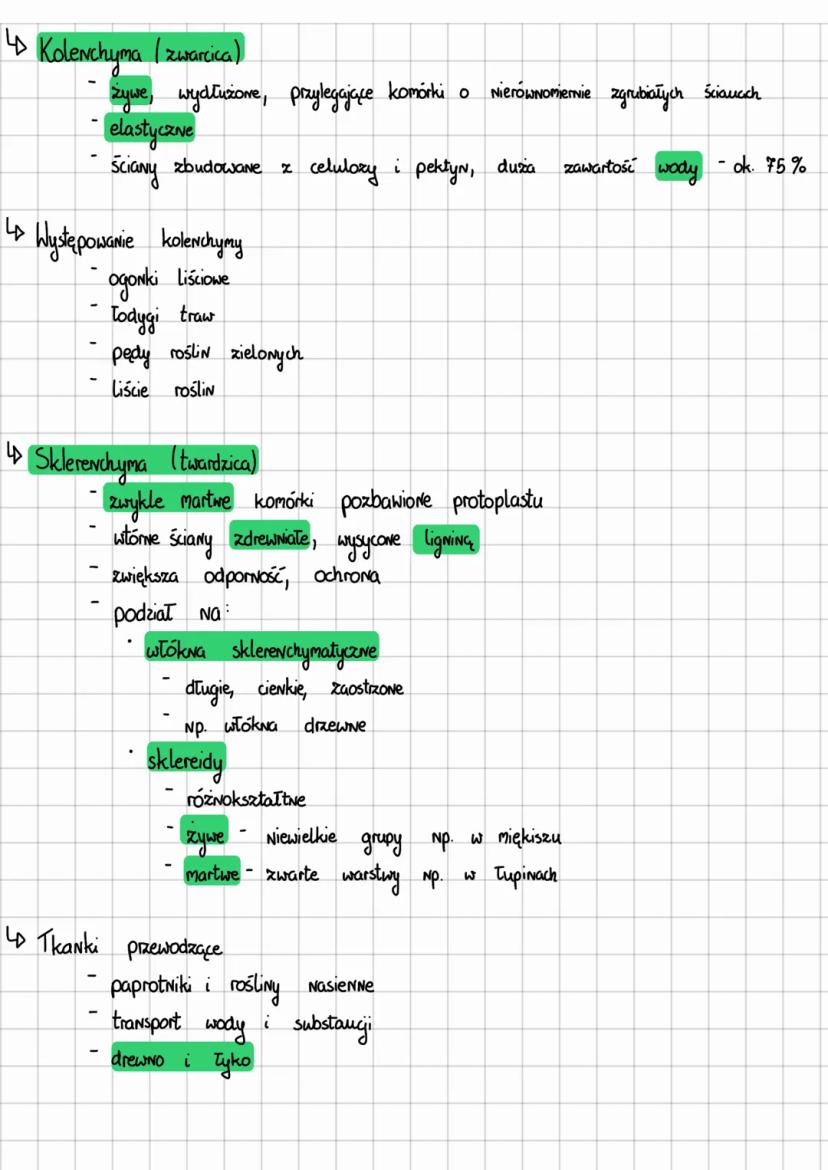 ↳ Kolenchyma (zwarcica)
- żywe, wydłużone, przylegające komórki o nierównomiernie zgrubiałych ścianach
- elastyczne
- ściany zbudowane z celulozy i pektyn, duża zawartość wody - ok. 75%
↳ Występowanie kolenchymy
- ogonki liściowe
- łodygi traw
- pędy roślin zielonych
- liście roślin
↳ Sklerenchyma (twardzica)
- zwykle martwe komórki pozbawione protoplastu
- wtórne ściany zdrewniałe, wysycone ligniną
- zwiększa odporność, ochrona
- podział na:
· włókna sklerenchymatyczne
- długie, cienkie, zaostrzone
- np. włókna drzewne
· sklereidy
- różnokształtne
- żywe - niewielkie grupy np. w miękiszu
- martwe - zwarte warstwy np. w łupinach
↳ Tkanki przewodzące
- paprotniki i rośliny nasienne
- transport wody i substancji
- drewno i łyko